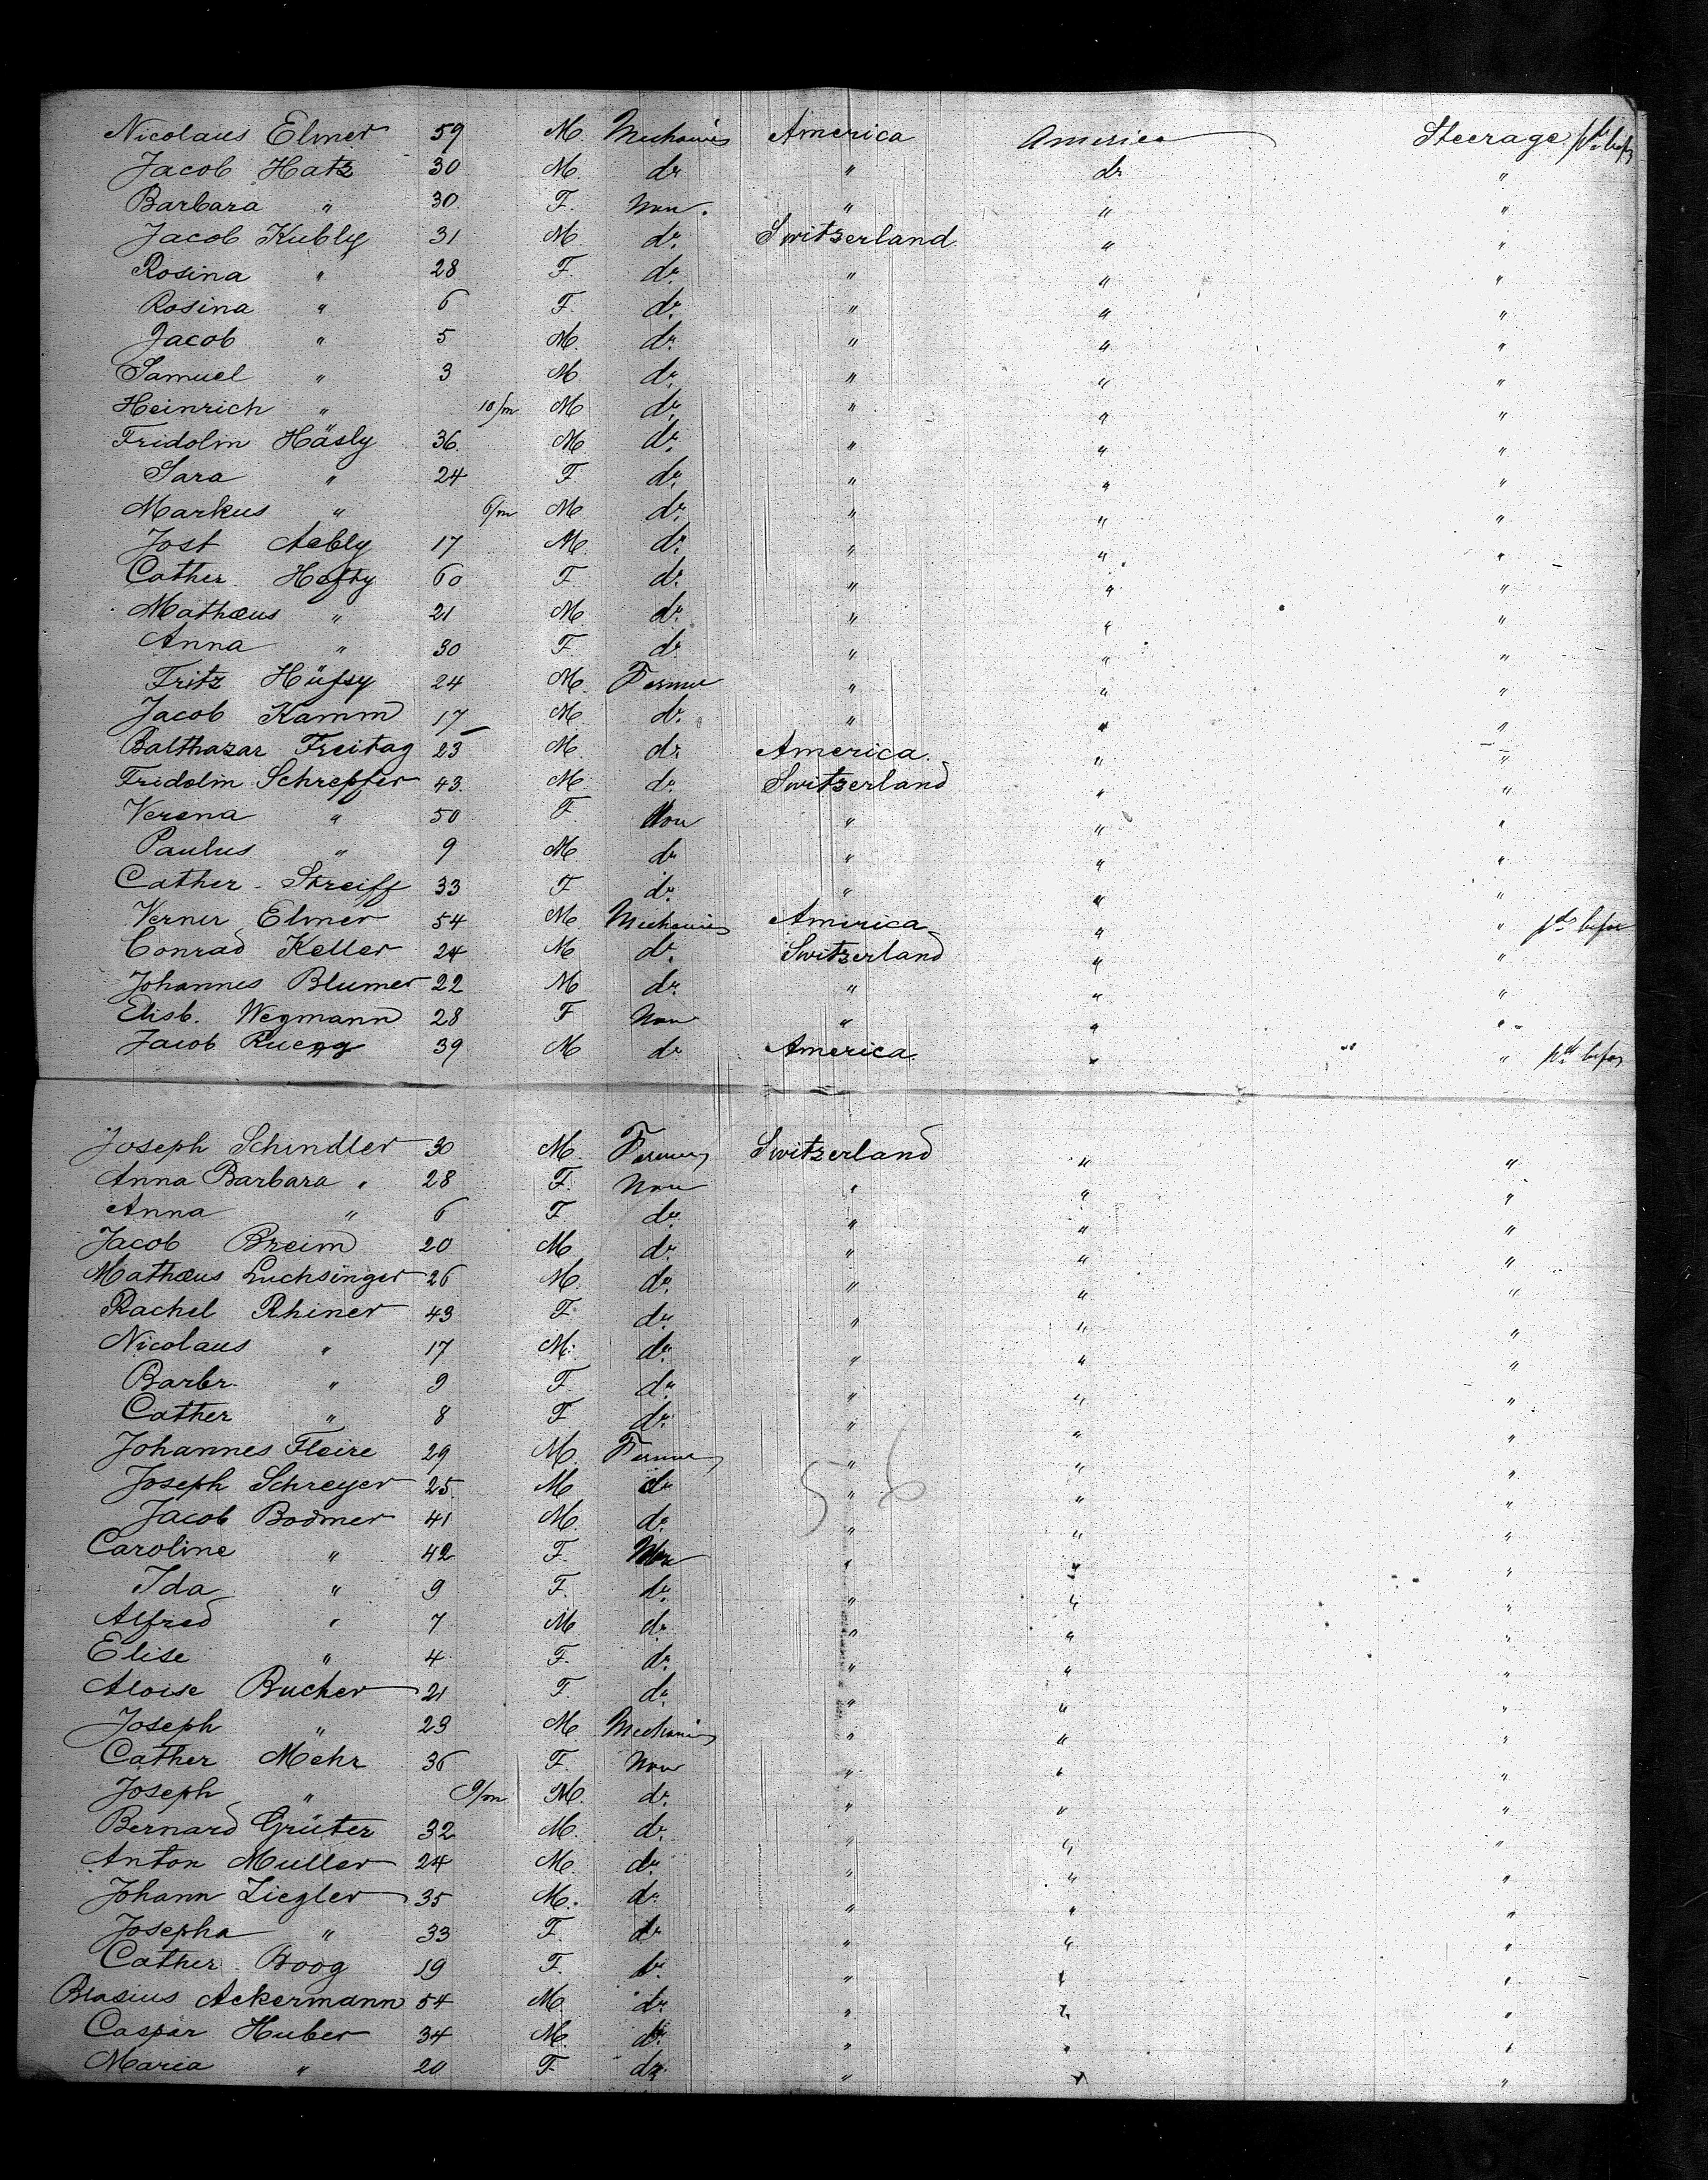 Nicolaus Elmer 59 M. Mechanics America America Steerage
Jacob Hatz 30 M. do " do "
Barbara " 30 F. None. " " "
Jacob Kubly 31 M. do. Switzerland " "
Rosina " 28 F. do. " " "
Rosina " 6 F. do. " " "
Jacob " 5 M. do. " " "
Samuel " 3 M. do. " " "
Heinrich " 10/m M do. " " "
Fridolin Häsly 36. M. do. " " "
Sara " 24 F do. " " "
Markus " 6/m M do. " " "
Jost Aebly 17 M. do. " " "
Cather. Hefty 60 F. do. " " "
Mathæus " 21 M. do. " " "
Anna " 30 F. do. " " "
Fritz Hüfsy 24 M. Farmer " " "
Jacob Kamm 17 M. do. " " "
Balthazar Freitag 23 M. do America. " "
Fridolin Schrepfer 43. M. do. Switzerland " "
Verena " 50 F. None " " "
Paulus " 9 M. do " " "
Cather. Streiff 33 F do. " " "
Verner Elmer 54 M. Mechanics Amirica " " pd. before
Conrad Keller 24 M do. Switzerland " "
Johannes Blumer 22 M do. " " "
Elisb. Wegmann 28 F None " " "
Jacob Ruegg 39 M do America " " pd. before
Joseph Schindler 30 M. Farmer Switzerland " "
Anna Barbara " 28 F. None " " "
Anna " 6 F. do. " " "
Jacob Breim 20 M. do. " " "
Mathæus Luchsinger 26 M. do. " " "
Rachel Rhiner 43 F. do. " " "
Nicolaus " 17 M. do. " " "
Barbr. " 9 F. do. " " "
Cather " 8 F do. " " "
Johannes Fleire 29 M. Farmer " " "
Joseph Schreyer 25. M. do " " "
Jacob Bodmer 41 M. do. " " "
56
Caroline " 42 F. None " " "
Ida " 9 F. do. " " "
Alfred " 7 M do. " " "
Elise " 4 F. do. " " "
Aloise Bucher 21 F. do. " " "
Joseph " 23 M. Mechanics " " "
Cather Mehr 36 F. None " " "
Joseph " 9/m M. do. " " "
Bernard Grüter 32 M. do. " " "
Anton Muller 24 M. do. " " "
Johann Ziegler 35 M. do. " " "
Josepha " 33 F. do " " "
Cather. Boog 19 F. do. " " "
Blasius Ackermann 54 M. do. " " "
Caspar Huber 34 M. do. " " "
Maria " 20 F do. " " "